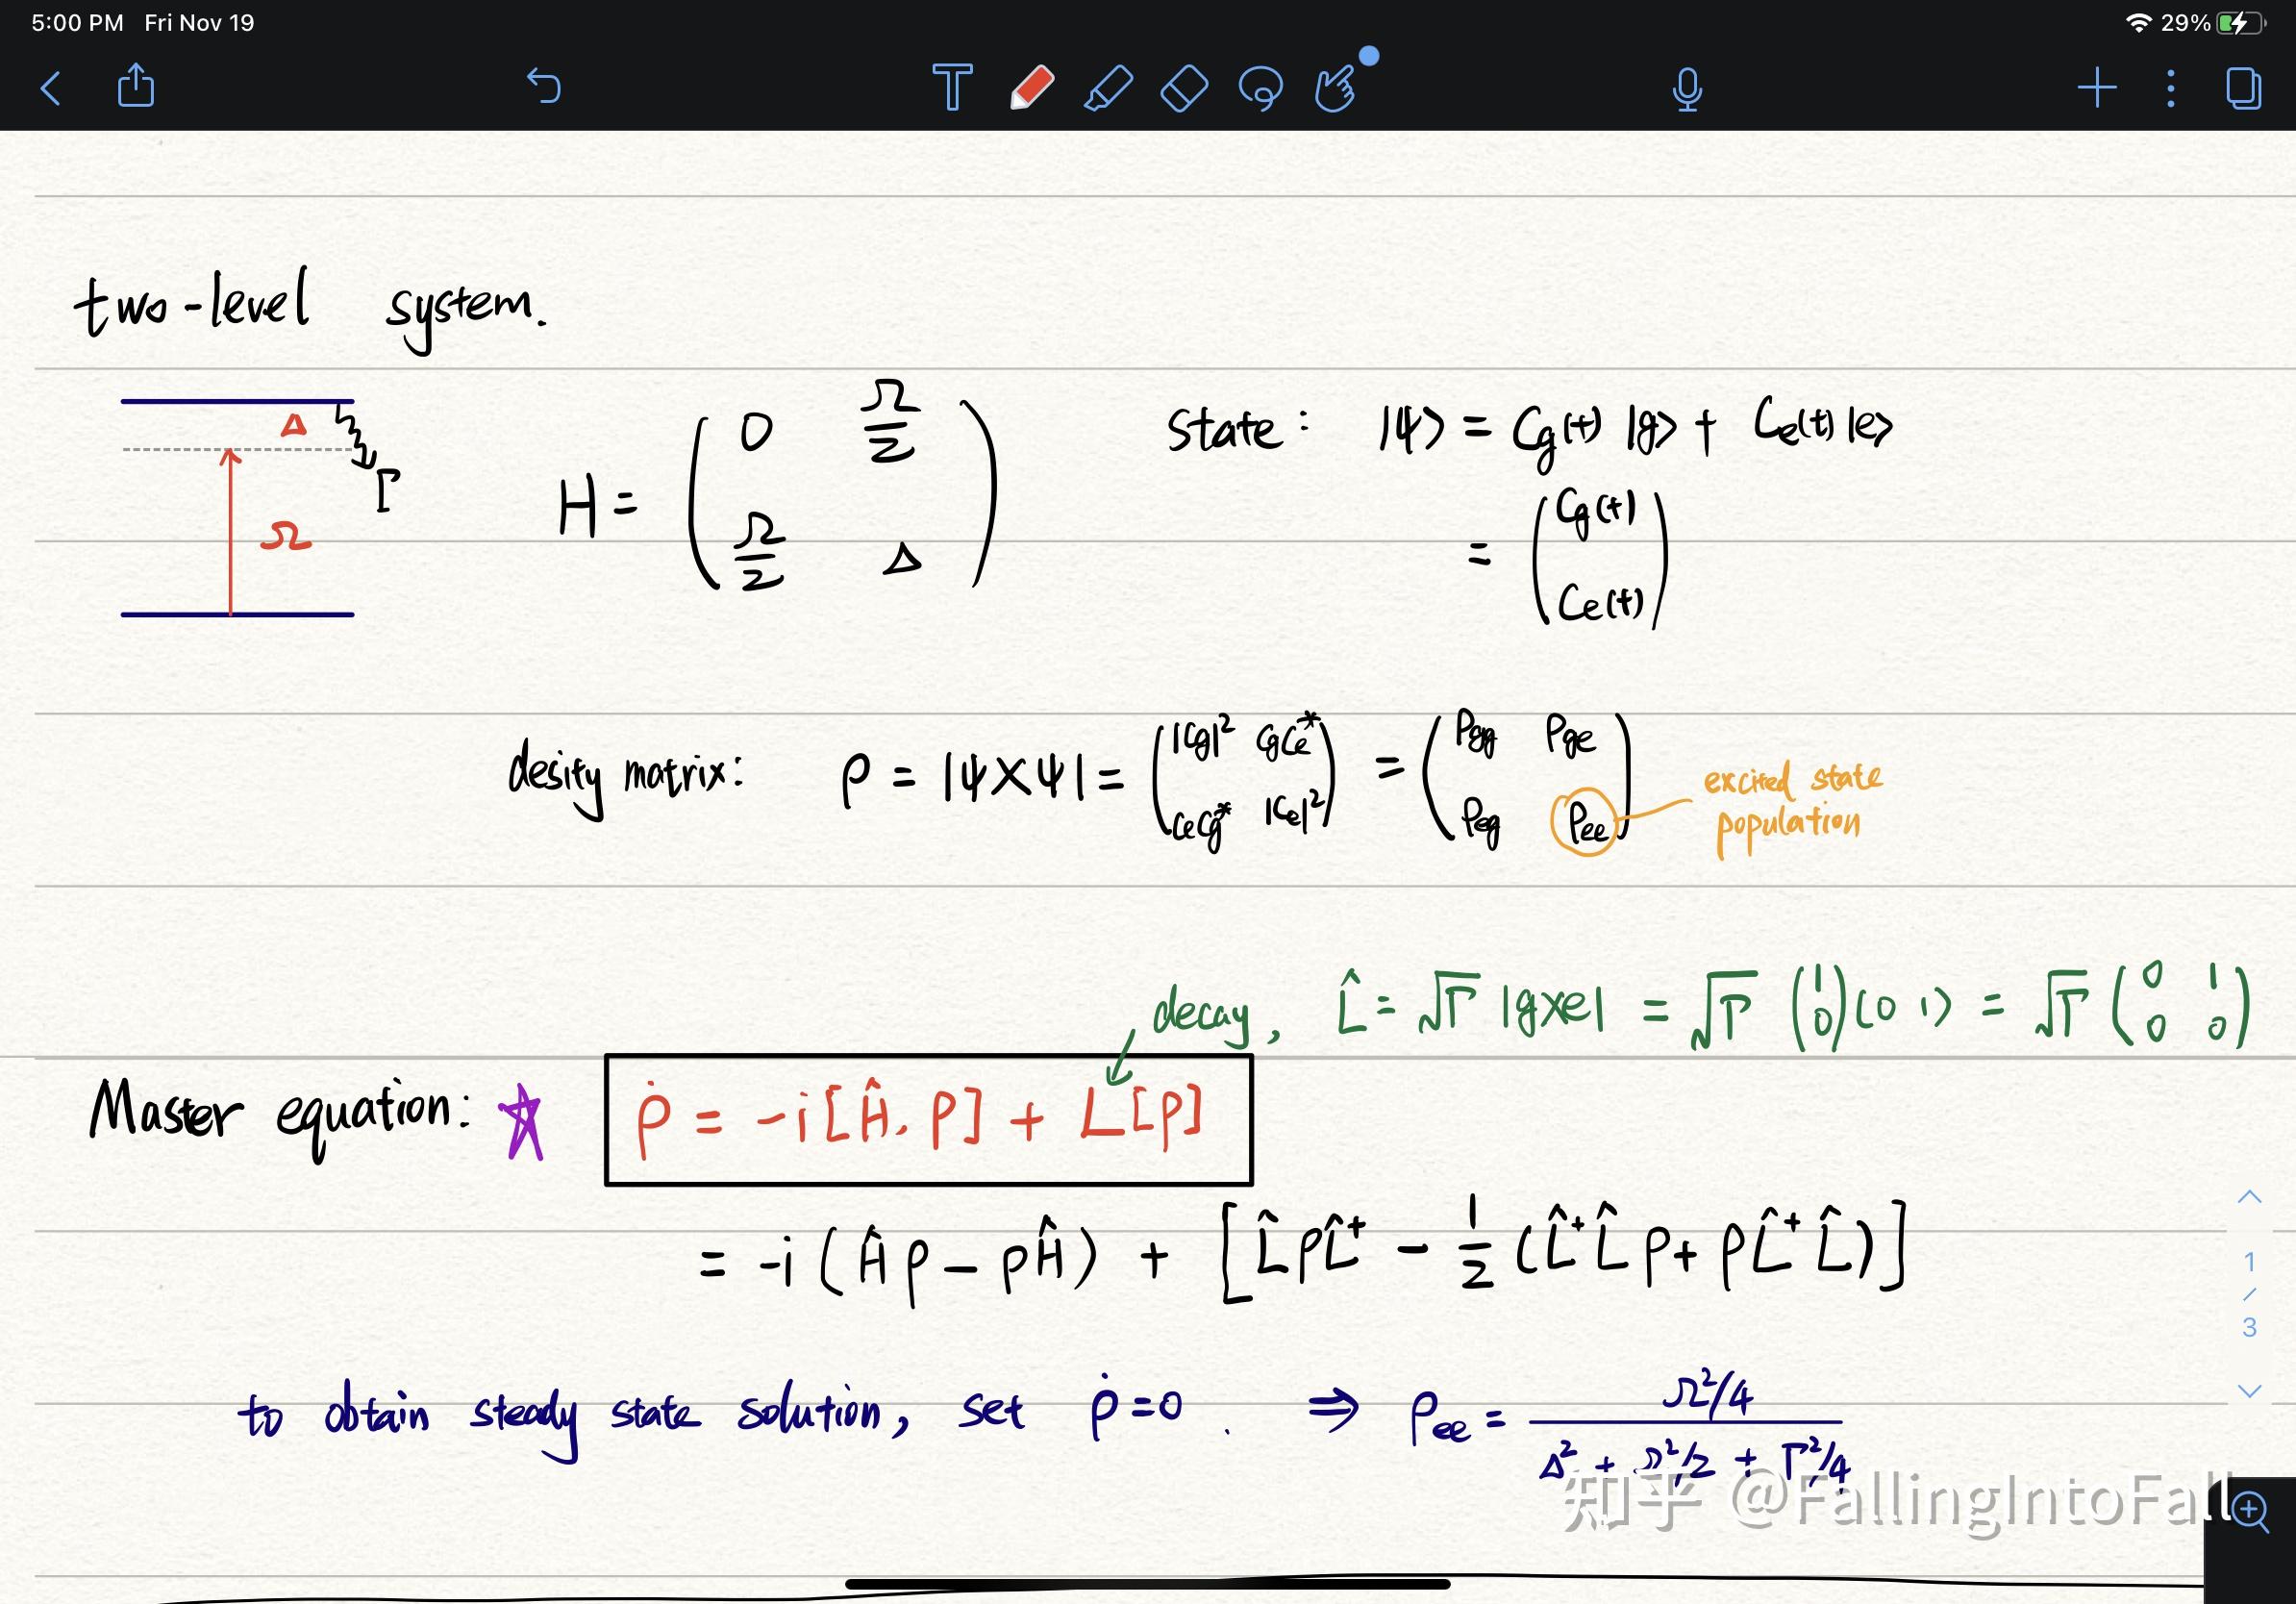 5:00 PM Fri Nov 19 29%
two-level system.
Δ
Γ
Ω
H = ( 0 Ω/2 ; Ω/2 Δ )
state: |ψ> = Cg(t) |g> + Ce(t) |e>
= ( Cg(t) ; Ce(t) )
desity matrix: ρ = |ψ><ψ| = ( |Cg|² CgCe* ; CeCg* |Ce|² ) = ( ρgg ρge ; ρeg ρee )
excited state
population
decay, L̂ = √Γ |g><e| = √Γ ( 1 ; 0 ) (0 1) = √Γ ( 0 1 ; 0 0 )
Master equation: ρ̇ = -i [Ĥ, ρ] + L[ρ]
= -i (Ĥρ - ρĤ) + [L̂ρL̂⁺ - 1/2 (L̂⁺L̂ρ + ρL̂⁺L̂)]
to obtain steady state solution, set ρ̇=0. ⇒ ρee = (Ω²/4) / (Δ² + Ω²/2 + Γ²/4)
1
/
3
知乎 @FallingIntoFall